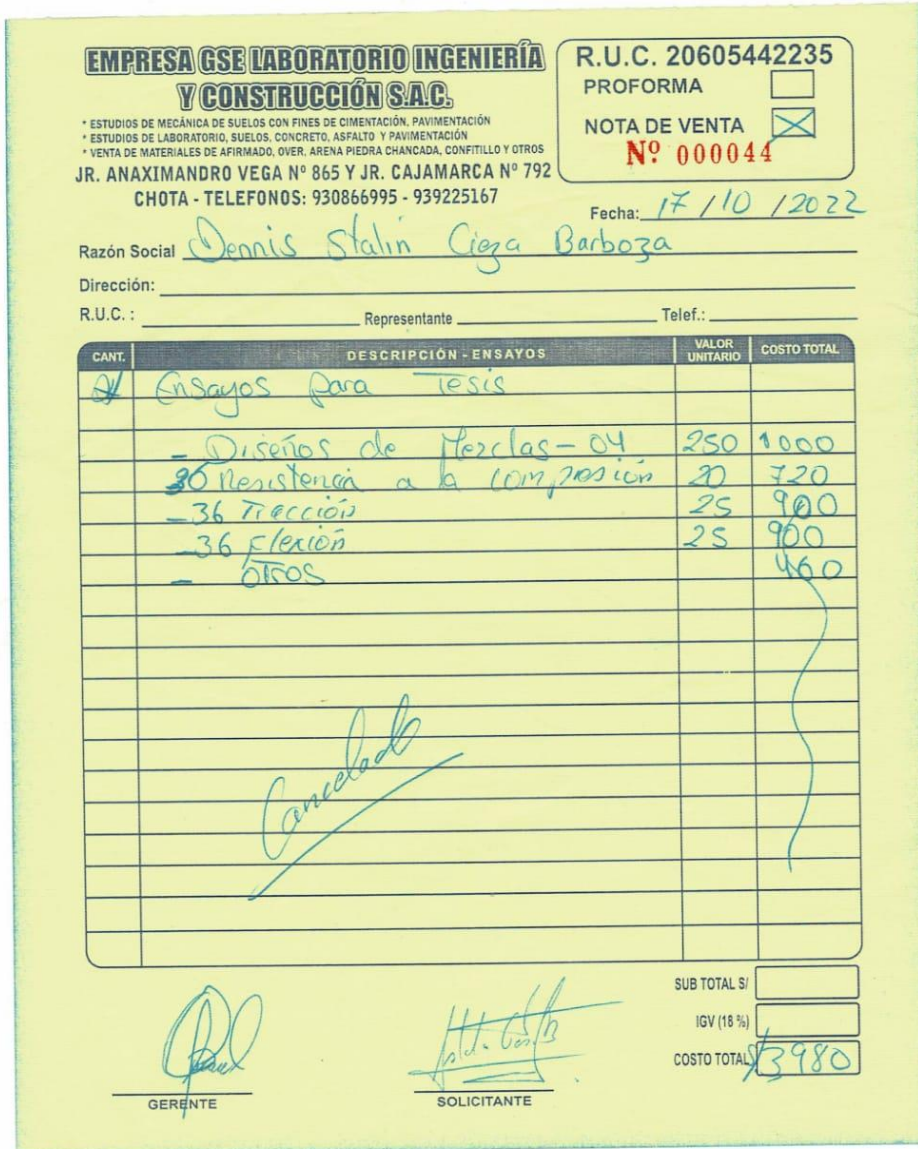 EMPRESA GSE LABORATORIO INGENIERÍA
Y CONSTRUCCIÓN S.A.C.
* ESTUDIOS DE MECÁNICA DE SUELOS CON FINES DE CIMENTACIÓN, PAVIMENTACIÓN
* ESTUDIOS DE LABORATORIO, SUELOS, CONCRETO, ASFALTO Y PAVIMENTACIÓN
* VENTA DE MATERIALES DE AFIRMADO, OVER, ARENA PIEDRA CHANCADA, CONFITILLO Y OTROS
JR. ANAXIMANDRO VEGA Nº 865 Y JR. CAJAMARCA Nº 792
CHOTA - TELEFONOS: 930866995 - 939225167
R.U.C. 20605442235
PROFORMA
NOTA DE VENTA
Nº 000044
Fecha: 17 / 10 / 2022
Razón Social Dennis Stalin Cieza Barboza
Dirección:
R.U.C. : Representante Telef.:
CANT. DESCRIPCIÓN - ENSAYOS VALOR UNITARIO COSTO TOTAL
Ensayos para Tesis
- Diseños de Mezclas - 04 250 1000
Resistencia a la compresión 20 720
- 36 Tracción 25 900
- 36 Flexión 25 900
- otros 460
Cancelado
SUB TOTAL S/
IGV (18 %)
COSTO TOTAL S/3980
GERENTE
SOLICITANTE